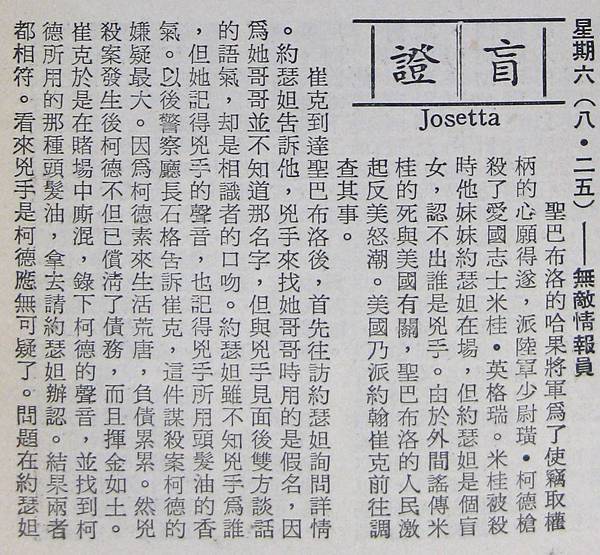 星期六（八·二五）——無敵情報員
盲證
Josetta
聖巴布洛的哈果將軍爲了使竊取權
柄的心願得遂，派陸軍少尉璜·柯德槍
殺了愛國志士米桂·英格瑞。米桂被殺
時他妹妹約瑟妲在場，但約瑟妲是個盲
女，認不出誰是兇手。由於外間謠傳米
桂的死與美國有關，聖巴布洛的人民激
起反美怒潮。美國乃派約翰崔克前往調
查其事。
崔克到達聖巴布洛後，首先往訪約瑟妲詢問詳情
。約瑟妲告訴他，兇手來找她哥哥時用的是假名，因
爲她哥哥並不知道那名字，但與兇手見面後雙方談話
的語氣，却是相識者的口吻。約瑟妲雖不知兇手爲誰
，但她記得兇手的聲音，也記得兇手所用頭髮油的香
氣。以後警察廳長石格告訴崔克，這件謀殺案柯德的
嫌疑最大。因爲柯德素來生活荒唐，負債累累。然兇
殺案發生後柯德不但已償清了債務，而且揮金如土。
崔克於是在賭場中廝混，錄下柯德的聲音，並找到柯
德所用的那種頭髮油，拿去請約瑟妲辦認。結果兩者
都相符。看來兇手是柯德應無可疑了。問題在約瑟妲